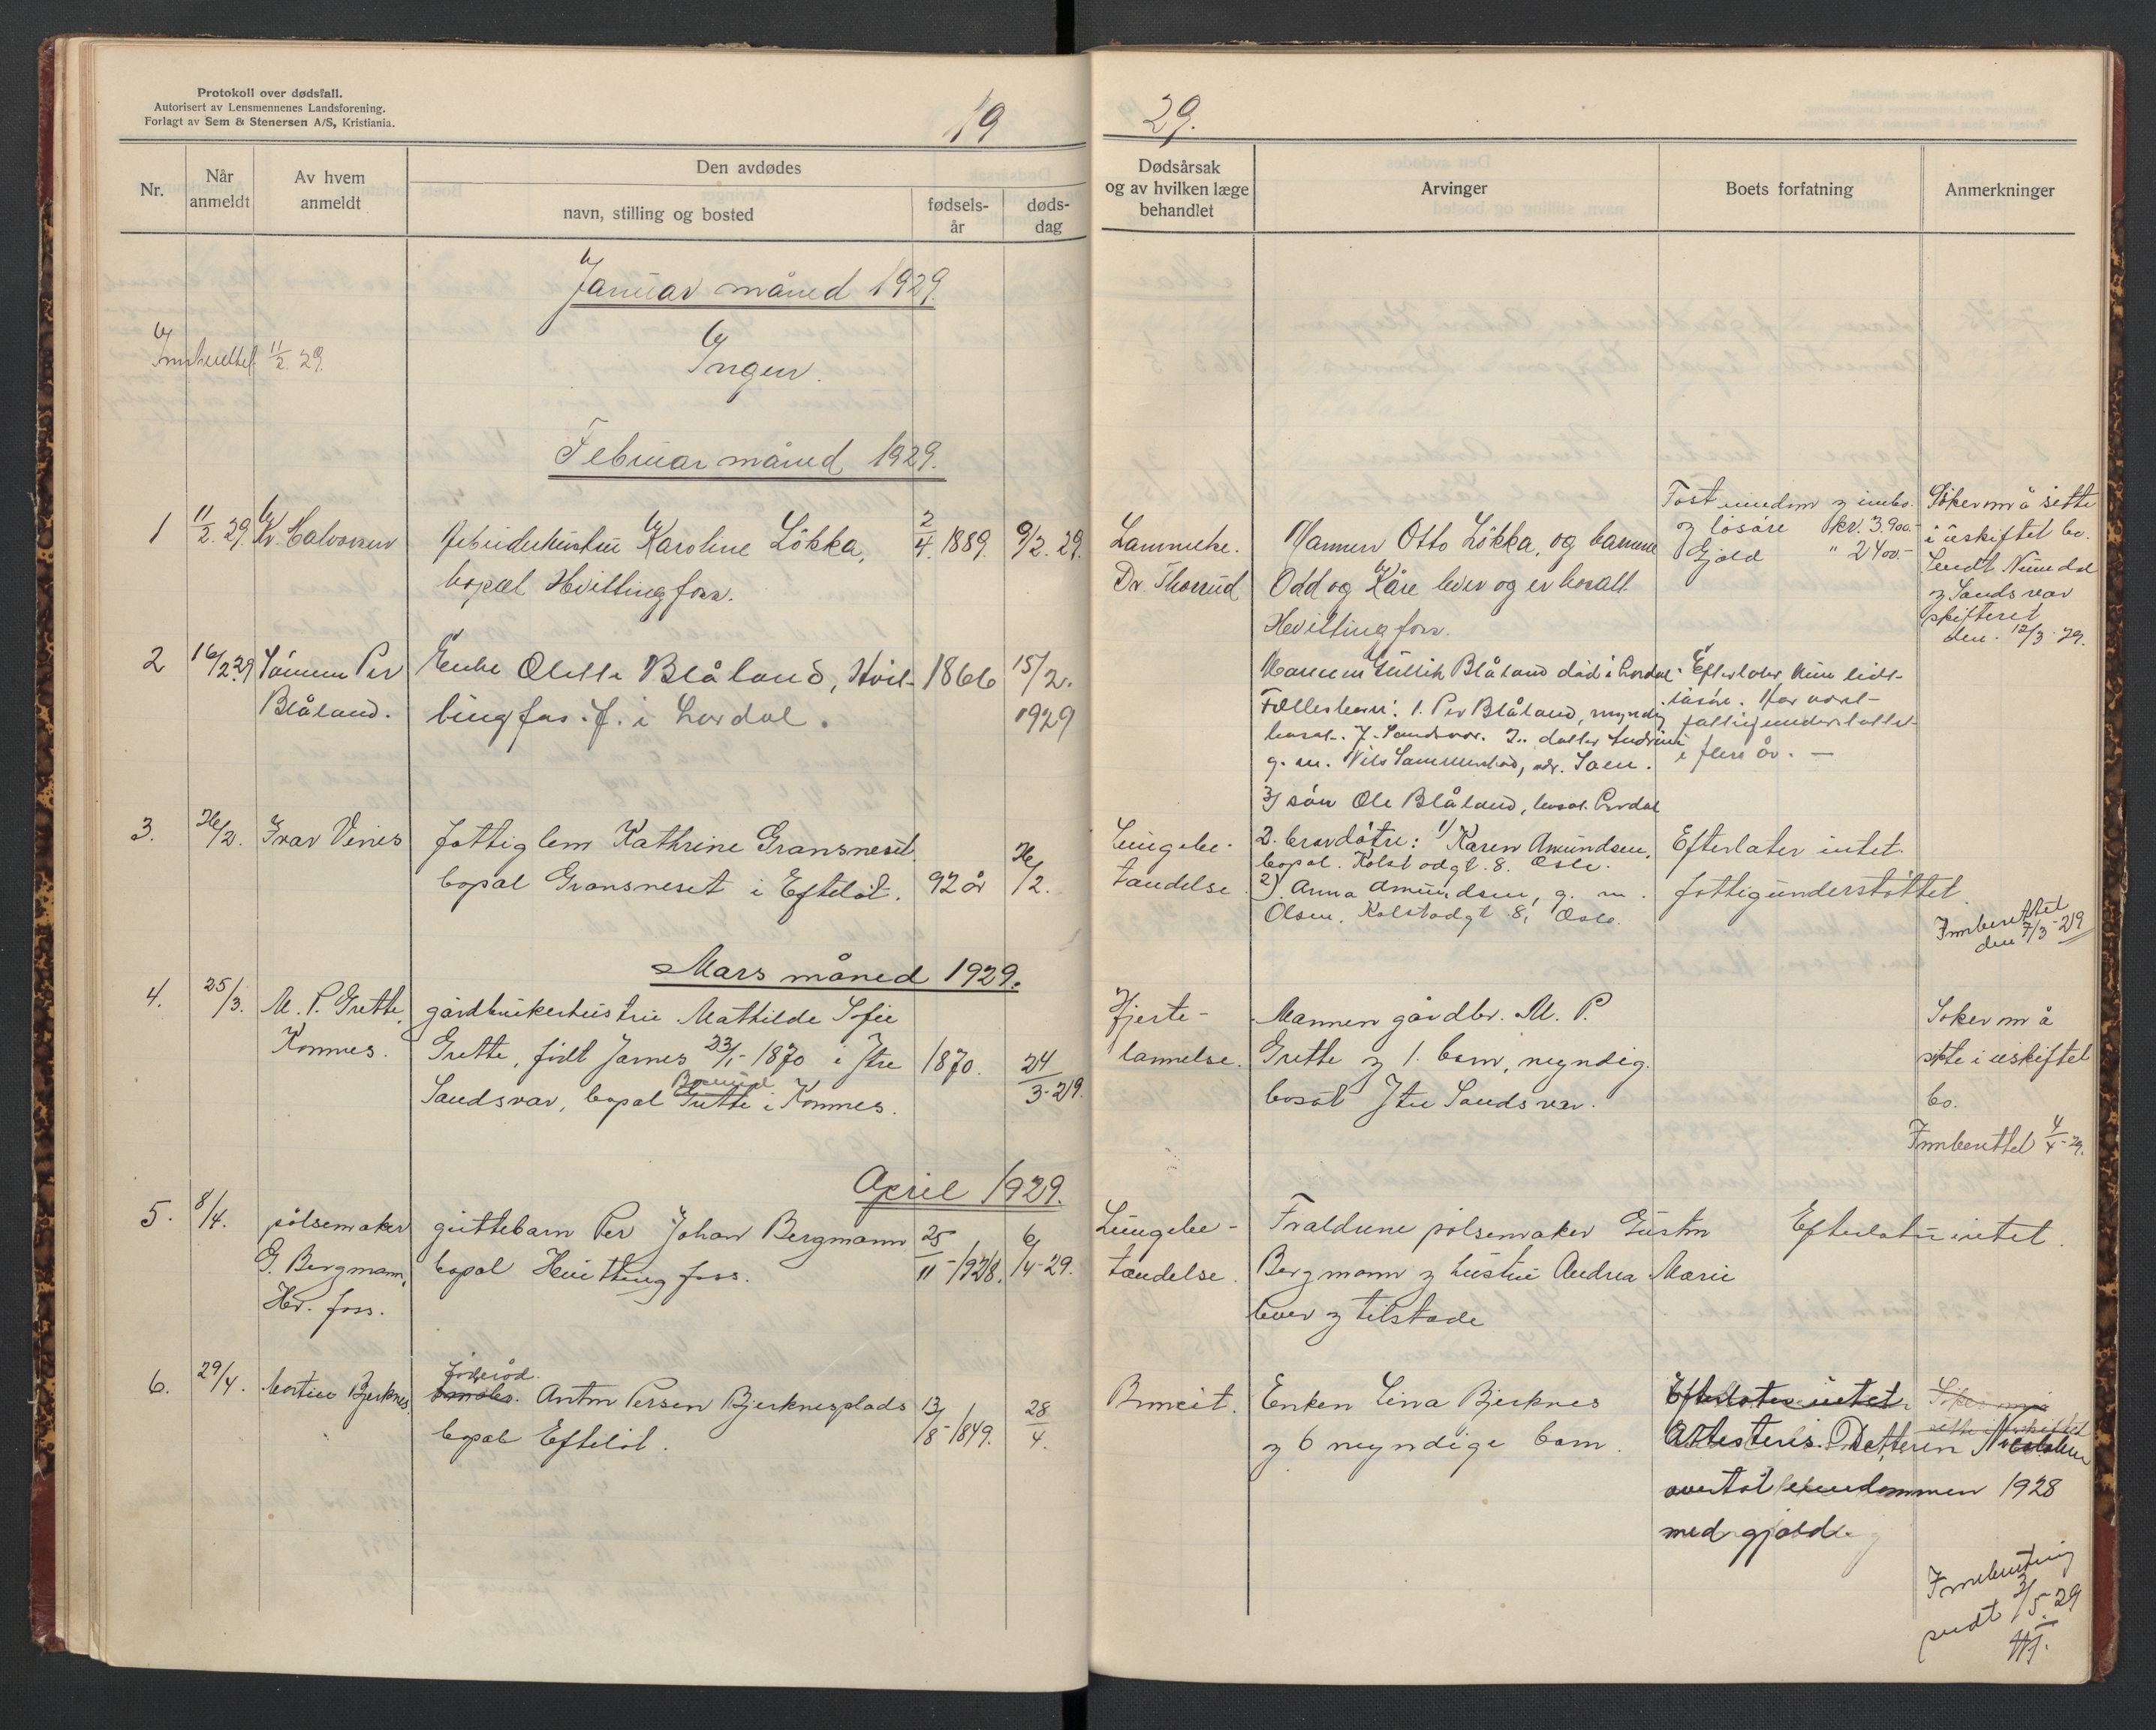 Protokoll over dødsfall.
Autorisert av Lensmennenes Landsforening.
Forlagt av Sem & Stenersen A/S, Kristiania.
19
29.
Nr.
Når anmeldt
Av hvem anmeldt
Den avdødes
navn, stilling og bosted
fødsels-år
døds-dag
Dødsårsak og av hvilken læge behandlet
Arvinger
Boets forfatning
Anmerkninger
Januar måned 1929.
11/2. 29.
Ingen.
Februar måned 1929.
1
11/2. 29.
Kr. Halvorsen
Arbeiderhustru Karoline Løkka,
bopæl Hvittingfoss.
2/4. 1889.
9/2. 29.
Lammelse.
Dr. Thorrud
Mannen Otto Løkka, og barnene
Odd og Kåre lever og er bosatt
Hvittingfoss.
Fast eiendom og innbo
og løsøre kr. 3.900.-
Gjæld " 2400.-
Søker om å sitte
i uskiftet bo.
Sendt Numedal
og Sandsvær
skifteret
den. 12/3 29.
2
16/2 29
Sønnen Per
Blåland.
Enke Olette Blåland, Hvit-
tingfos. f. i Lardal.
1866
15/2.
1929
Mannen Gullik Blåland død i Lardal.
Fællesbarn: 1. Per Blåland, myndig
bosat. Y. Sandsvær. 2. datter
g. m. Nils
3) søn Ole Blåland, bosat. Lardal
Efterlater kun litt
løsøre. Har vært
fattigunderstøttet
i flere år. —
3.
26/2.
Ivar Venes
fattiglem Kathrine Gransneset.
bopæl Gransneset i Efteløt.
92 år
26/2.
Lungebe-
tændelse.
2. brordøtre: 1) Karen Amundsen,
bopæl. Kolstadgt. 8. Oslo.
2) Anna Amundsen, g. m.
Olsen. Kolstadgt 8, Oslo.
Efterlater intet.
fattigunderstøttet.
Innberettet
den 7/3-29
Mars måned 1929.
4.
25/3.
M. P. Grette,
Komnes.
gårdbrukerhustru Mathilde Sofie
Grette, født Jarnes 23/1-1870 i Ytre
Sandsvær, bopæl Grette i Komnes.
1870.
24/3-29.
Hjerte-
lammelse.
Mannen gårdbr. M. P.
Grette og 1. barn, myndig.
bosat Ytre Sandsvær.
Søker om å
sitte i uskiftet
bo.
Innberettet 4/4-29.
April 1929.
5.
8/4.
pølsemaker
G. Bergmann,
Hv. foss.
guttebarn Per Johan Bergmann
bopæl Hvittingfoss.
25/11-1928.
6/4-29.
Lungebe-
tændelse.
Foreldrene pølsemaker Gustav
Bergmann og hustru Andrea Marie
lever og tilstede
Efterlater intet.
6.
29/4.
Bjerknes.
føderåd.
Anton Persen Bjerknesplads
bopæl Efteløt.
13/8-1849.
28/4.
Bronkit.
Enken Lina Bjerknes
og 6 myndige barn.
Efterlater intet.
Attesteris. Datteren
overtok eiendommen 1928
med gjæld
Søker om å
sitte i uskiftet
Innberetning
sendt 2/5-29